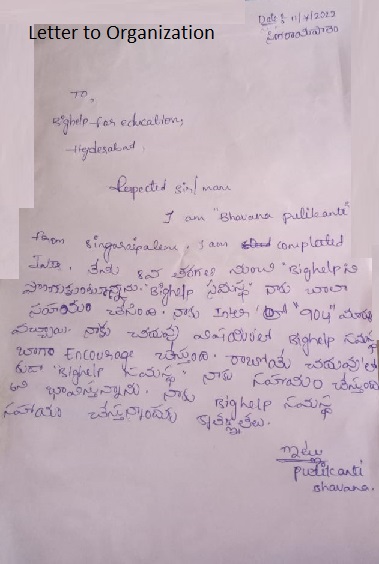 Letter to Organization
Date : 11/4/2023
సింగరాయపాలెం
To,
Bighelp for education,
Hyderabad,
Respected sir/mam
I am "Bhavana pulikanti"
from singaraipalem. I am completed
Inter. నేను 8వ తరగతి నుంచి "Bighelp ని
పొందుకుంటున్నాను. "Bighelp సమస్థ" నాకు చాలా
సహాయం చేసింది. నాకు Inter లో "904" మార్కు
వచ్చాయి. నాకు చదువు విషయంలో Bighelp సమస్థ
బాగా Encourage చేస్తుంది. రాబోయే చదువులలో
కూడా "Bighelp సమస్థ" నాకు సహాయం చేస్తుంది
అని భావిస్తున్నాను. నాకు Bighelp సమస్థ
సహాయం చేస్తున్నందుకు కృతజ్ఞతలు.
ఇట్లు
pulikanti
Bhavana.